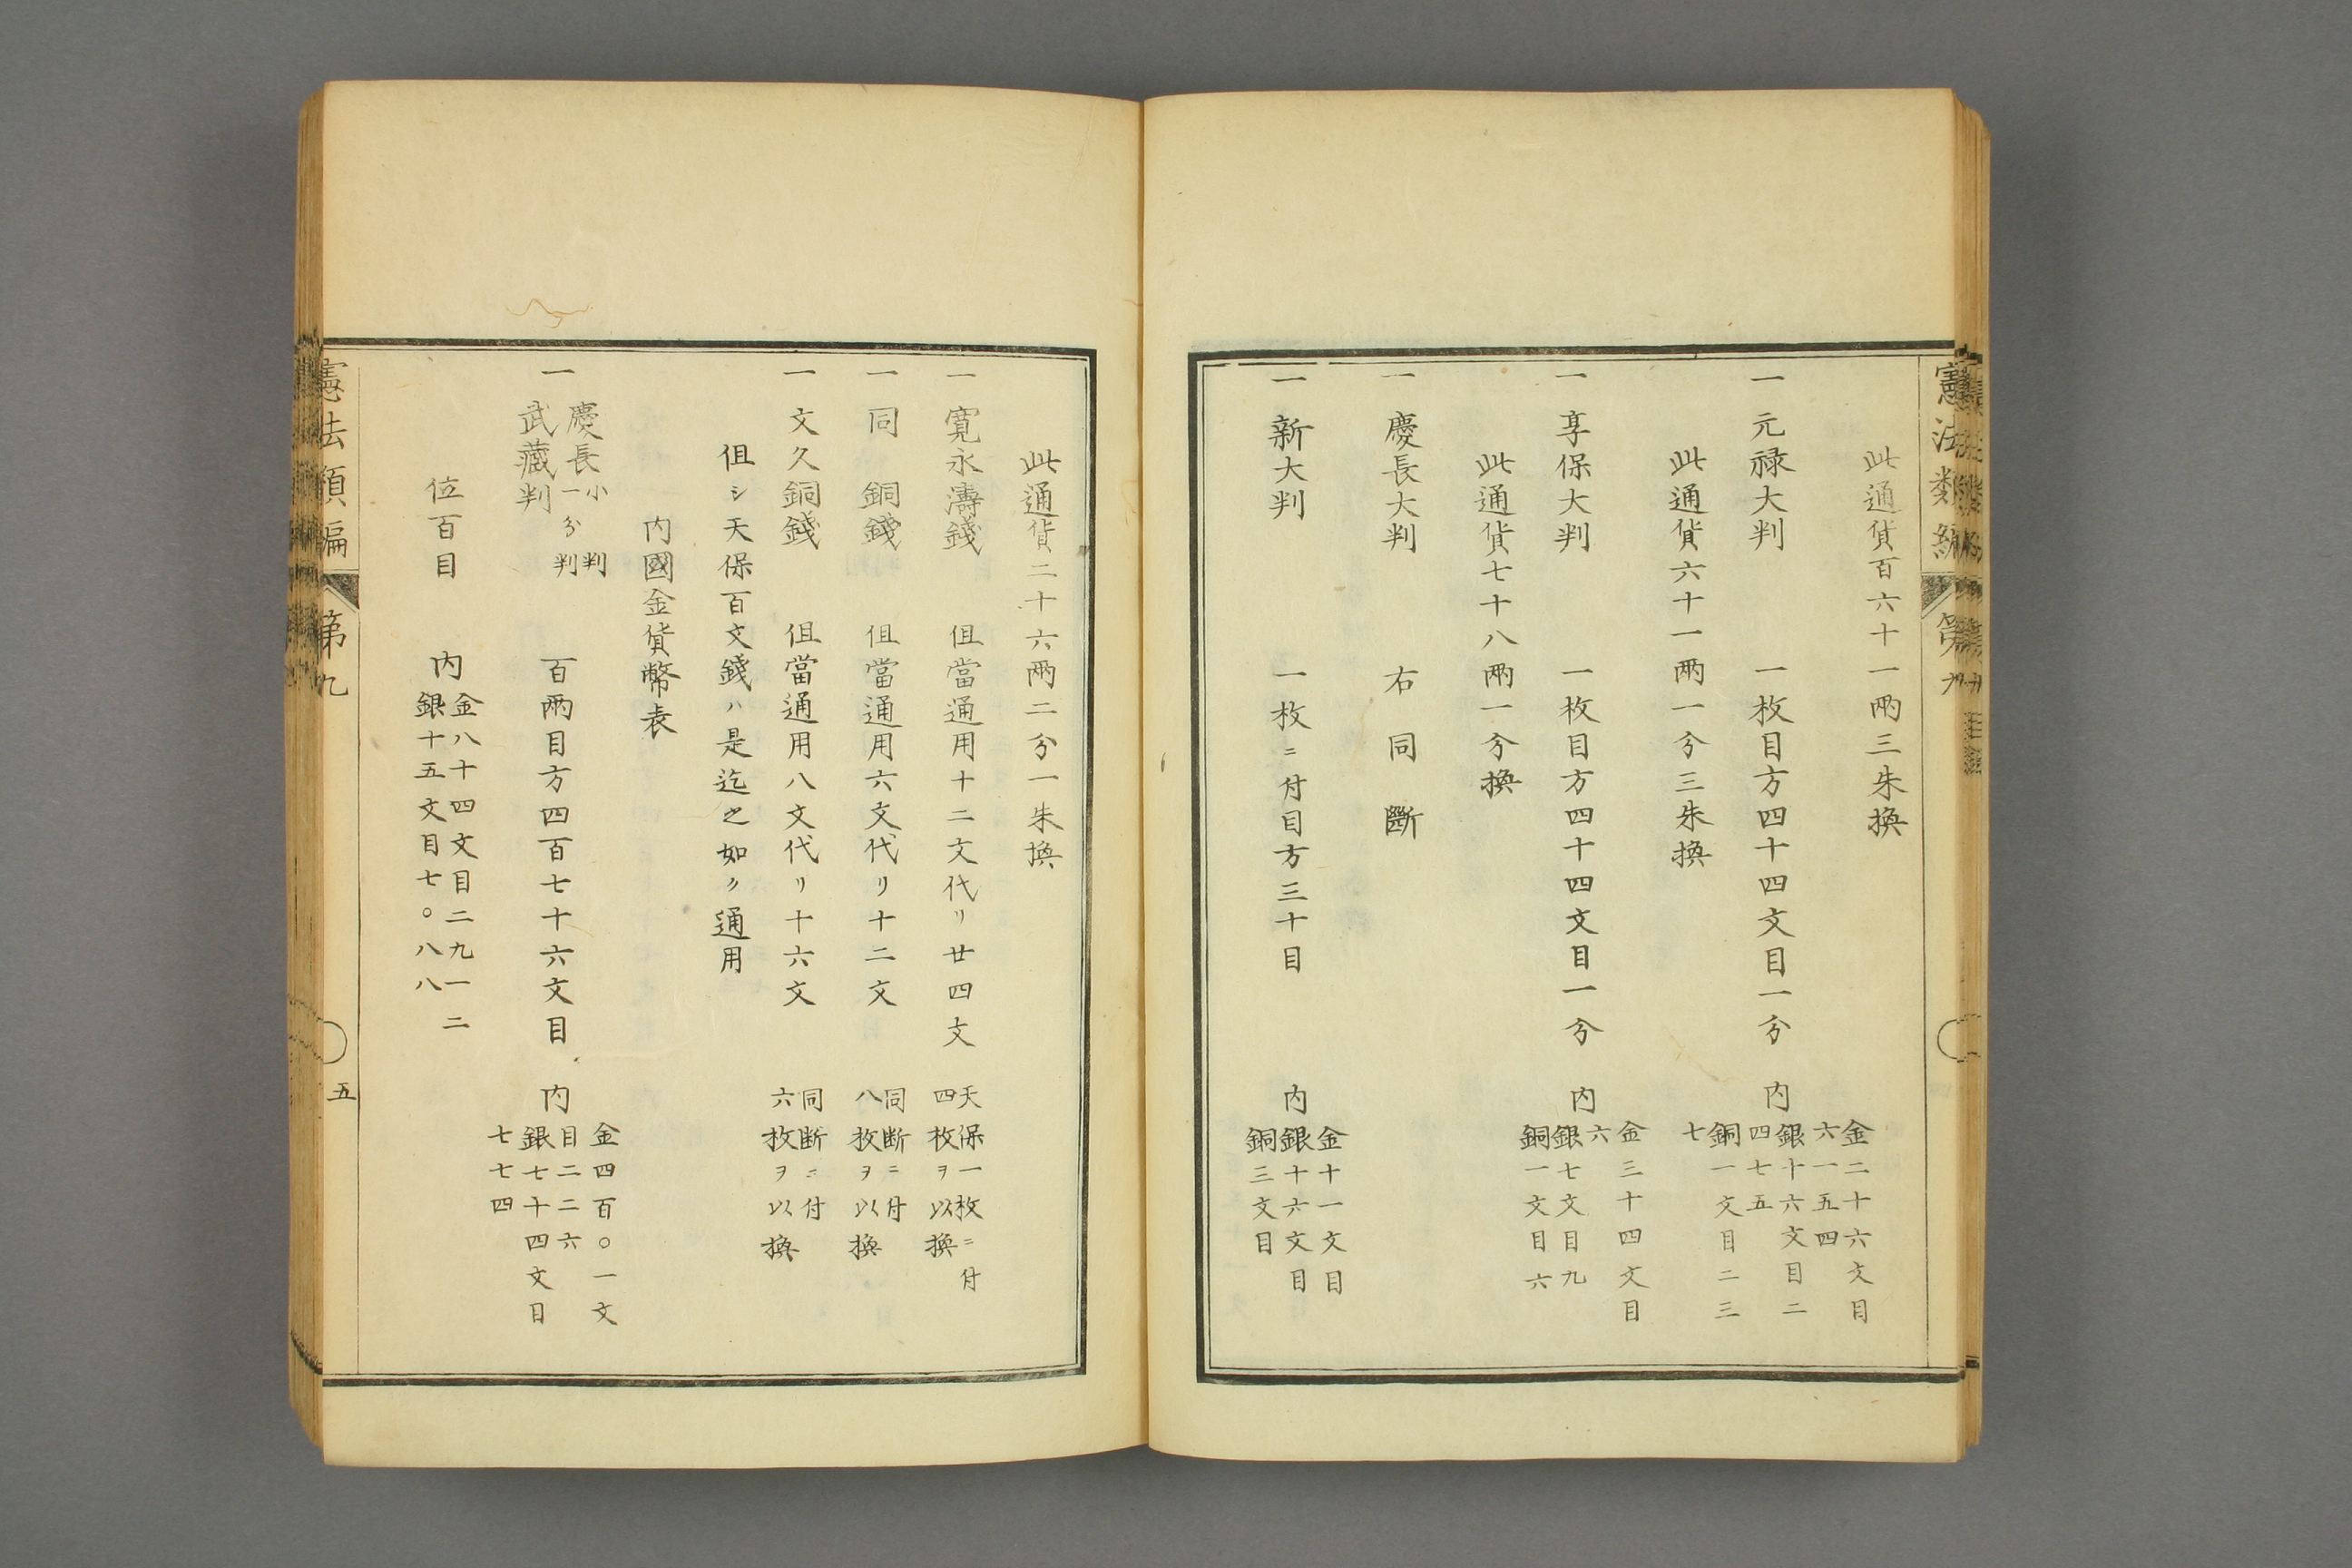 憲法類編 第九
此通貨百六十一兩三朱換
一 元禄大判 一枚目方四十四文目一分 内
金二十六文目
六一五四
銀十六文目二
四七五
銅一文目二三
七
此通貨六十一兩一分三朱換
一 享保大判 一枚目方四十四文目一分 内
金三十四文目
六
銀七文目九
銅一文目六
此通貨七十八兩一分換
一 慶長大判 右同斷
一 新大判 一枚ニ付目方三十目 内
金十一文目
銀十六文目
銅三文目
此通貨二十六兩二分一朱換
一 寛永濤錢 但當通用十二文代リ廿四文
天保一枚ニ付
四枚ヲ以換
一 同 銅錢 但當通用六文代リ十二文
同断ニ付
八枚ヲ以換
一 文久銅錢 但當通用八文代リ十六文
同断ニ付
六枚ヲ以換
但シ天保百文錢ハ是迄之如ク通用
内國金貨幣表
一 慶長小判
一分判
武藏判 百兩目方四百七十六文目 内
金四百〇一文
目二二六
銀七十四文目
七七四
位百目 内
金八十四文目二九一二
銀十五文目七〇八八
憲法類編 第九
五